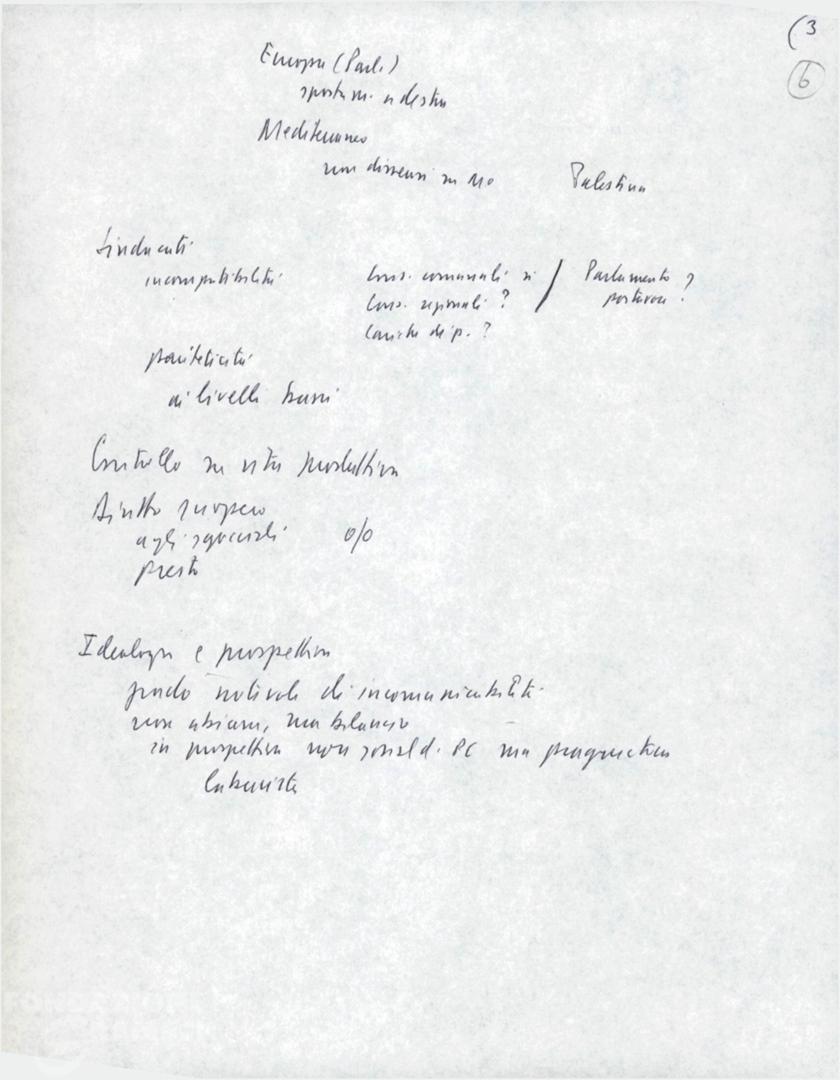 (3
6
Europa (Parl.)
spostam. a destra
Mediterraneo
non dissensi su MO Palestina
Sindacati
incompatibilità Cons. comunali sì / Parlamento ?
Cons. regionali ?
Cariche di p. ?
pariteticità
ai livelli bassi
Controllo su vita produttiva
Diritto europeo
agli
presto
Ideologia e prospettiva
grado notevole di incomunicabilità
non abiura, ma bilancio
in prospettiva non PC ma pragmatica
laburista